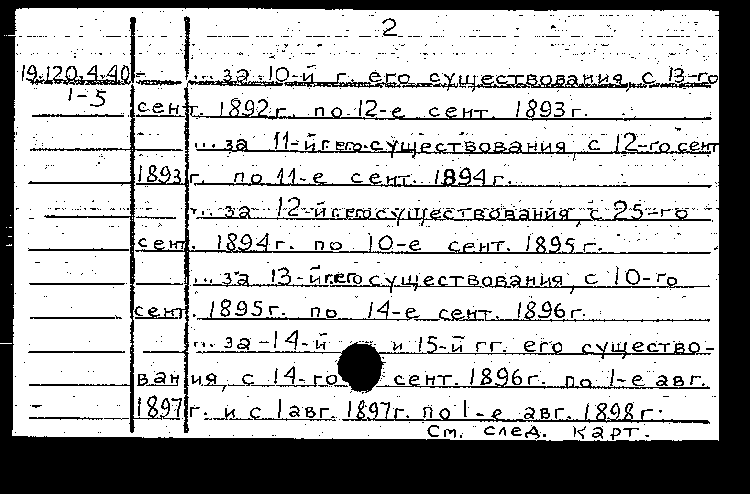 2
19.120.4.40 - ...за 10-й г. его существования, с 13-го
1-5
сент. 1892г. по 12-е сент. 1893г.
...за 11-й г. его существования, с 12-го сент
1893г. по 11-е сент. 1894г.
- ...за 12-й г. его существования, с 25-го
сент. 1894г. по 10-е сент. 1895г.
...за 13-й г. его существования, с 10-го
сент. 1895г. по 14-е сент. 1896г.
...за 14-й и 15-й гг. его существо-
вания, с 14-го сент. 1896г. по 1-е авг.
1897г. и с 1 авг. 1897г. по 1-е авг. 1898г.
См. след. карт.